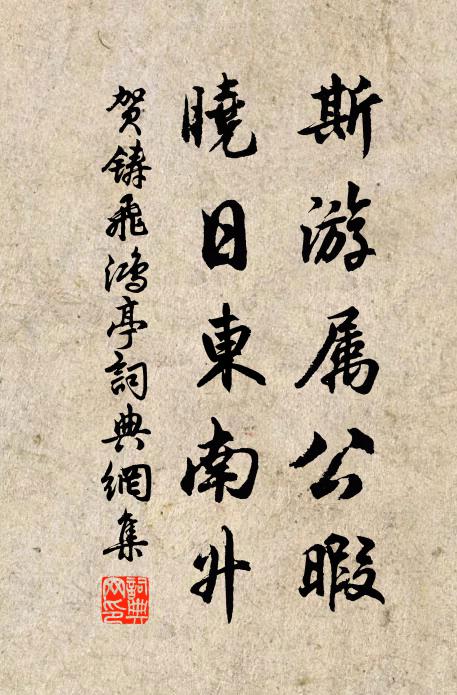 斯游属公暇
曉日東南升
賀鑄飛鴻亭詞典網集
詞典网印